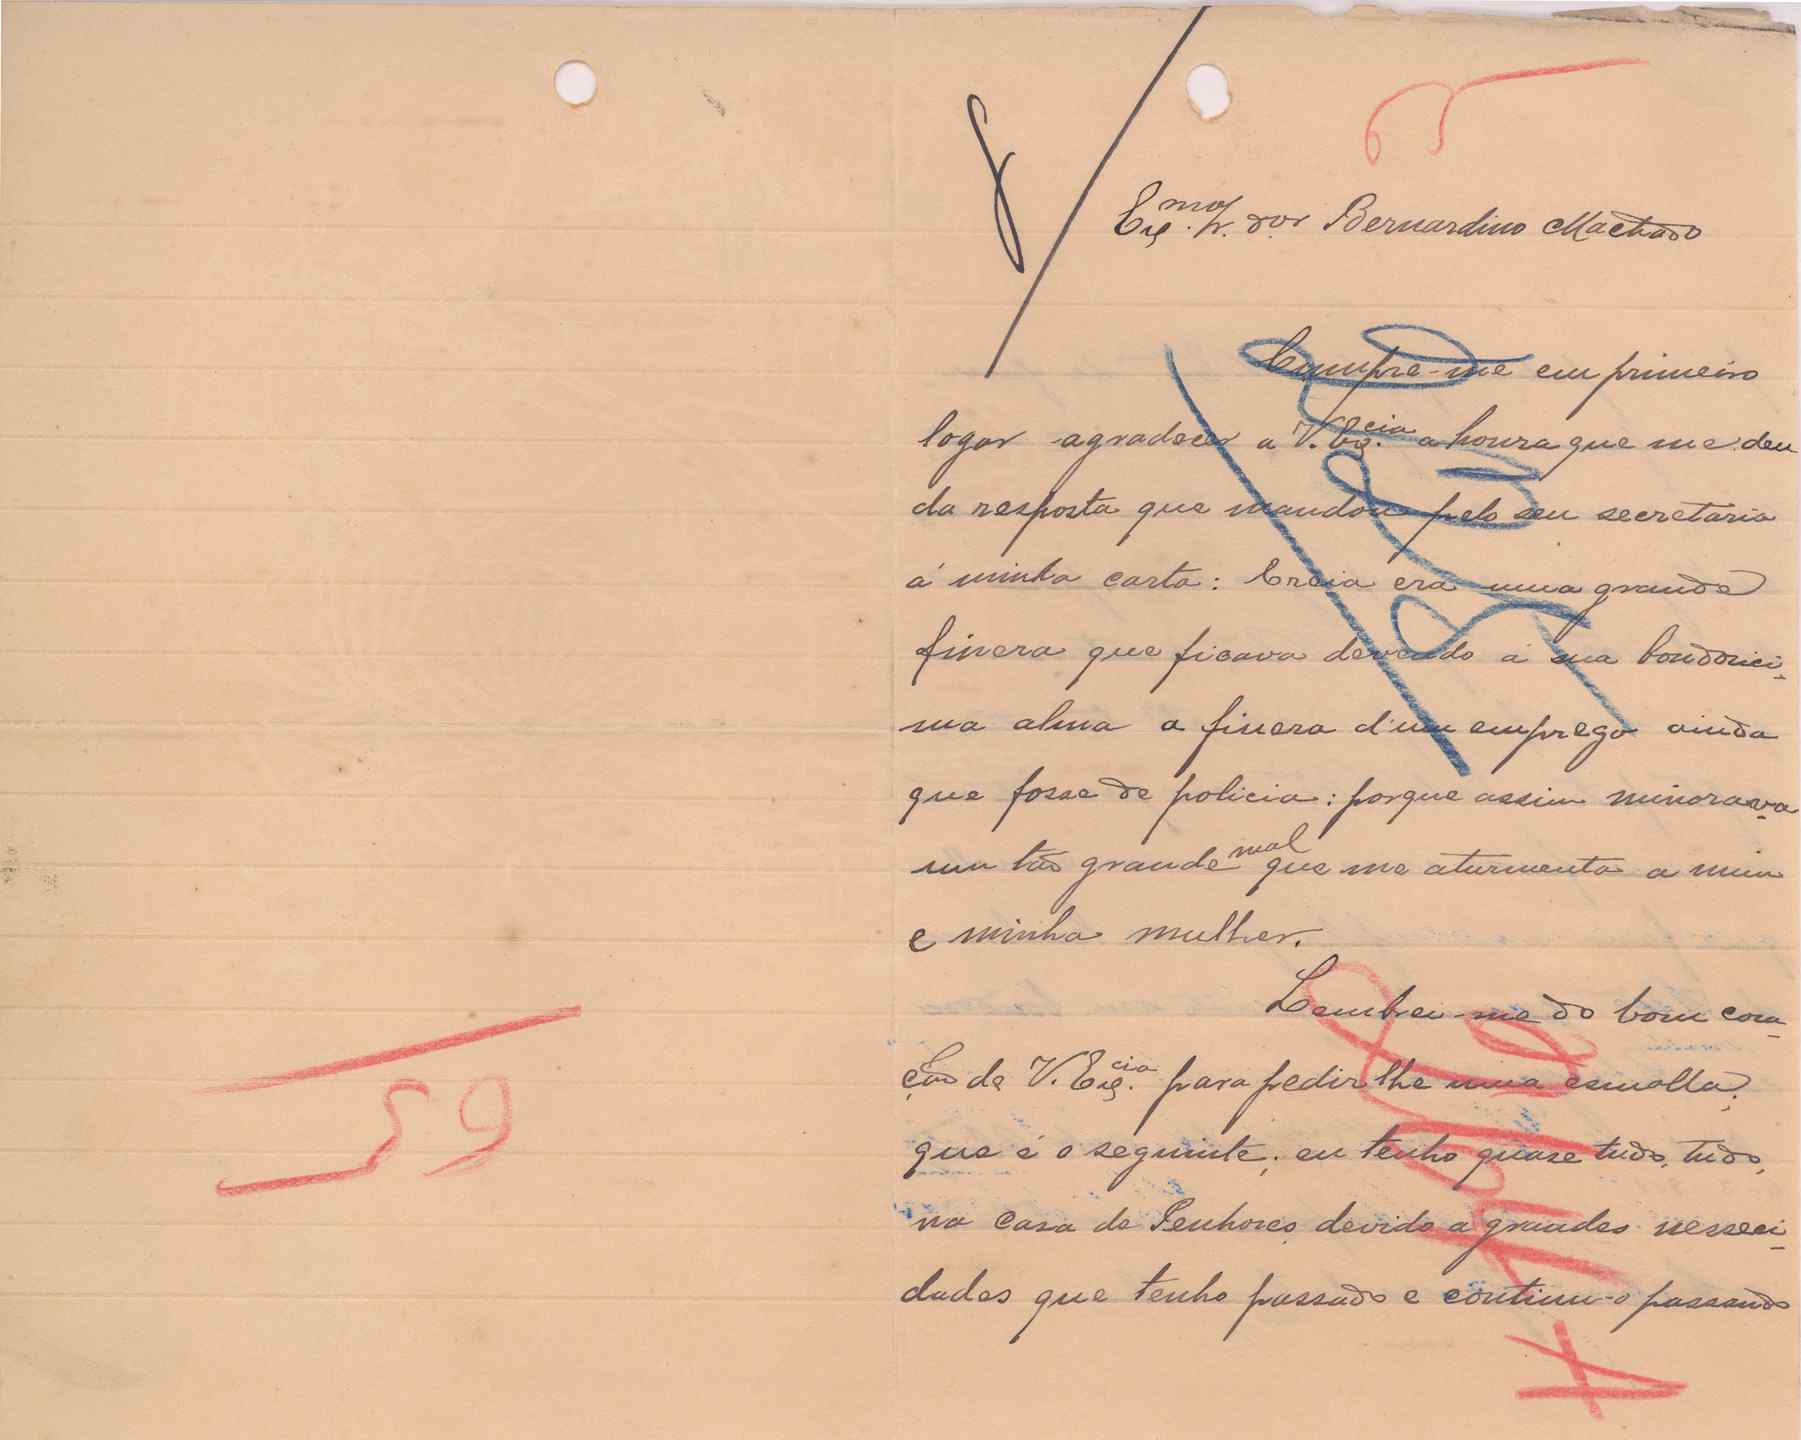 Exmo Sr. dor Bernardino Machado
Cumpre-me em primeiro
logar agradecer a V. Excia a honra que me deu
da resposta que mandou pelo seu secretario
á minha carta: Creia era uma grande
fineza que ficava devendo á sua bondosici-
ma alma a fineza d'um emprego ainda
que fosse de policia: porque assim minorava
um tão grande mal que me aturmenta a mim
e minha mulher.
Lembrei-me do bom cora-
ção de V. Excia. para pedir lhe uma esmolla,
que é o seguinte; eu tenho quase tudo, tudo,
na casa de Penhores devido a grandes nesseci-
dades que tenho passado e continu-o passando
59